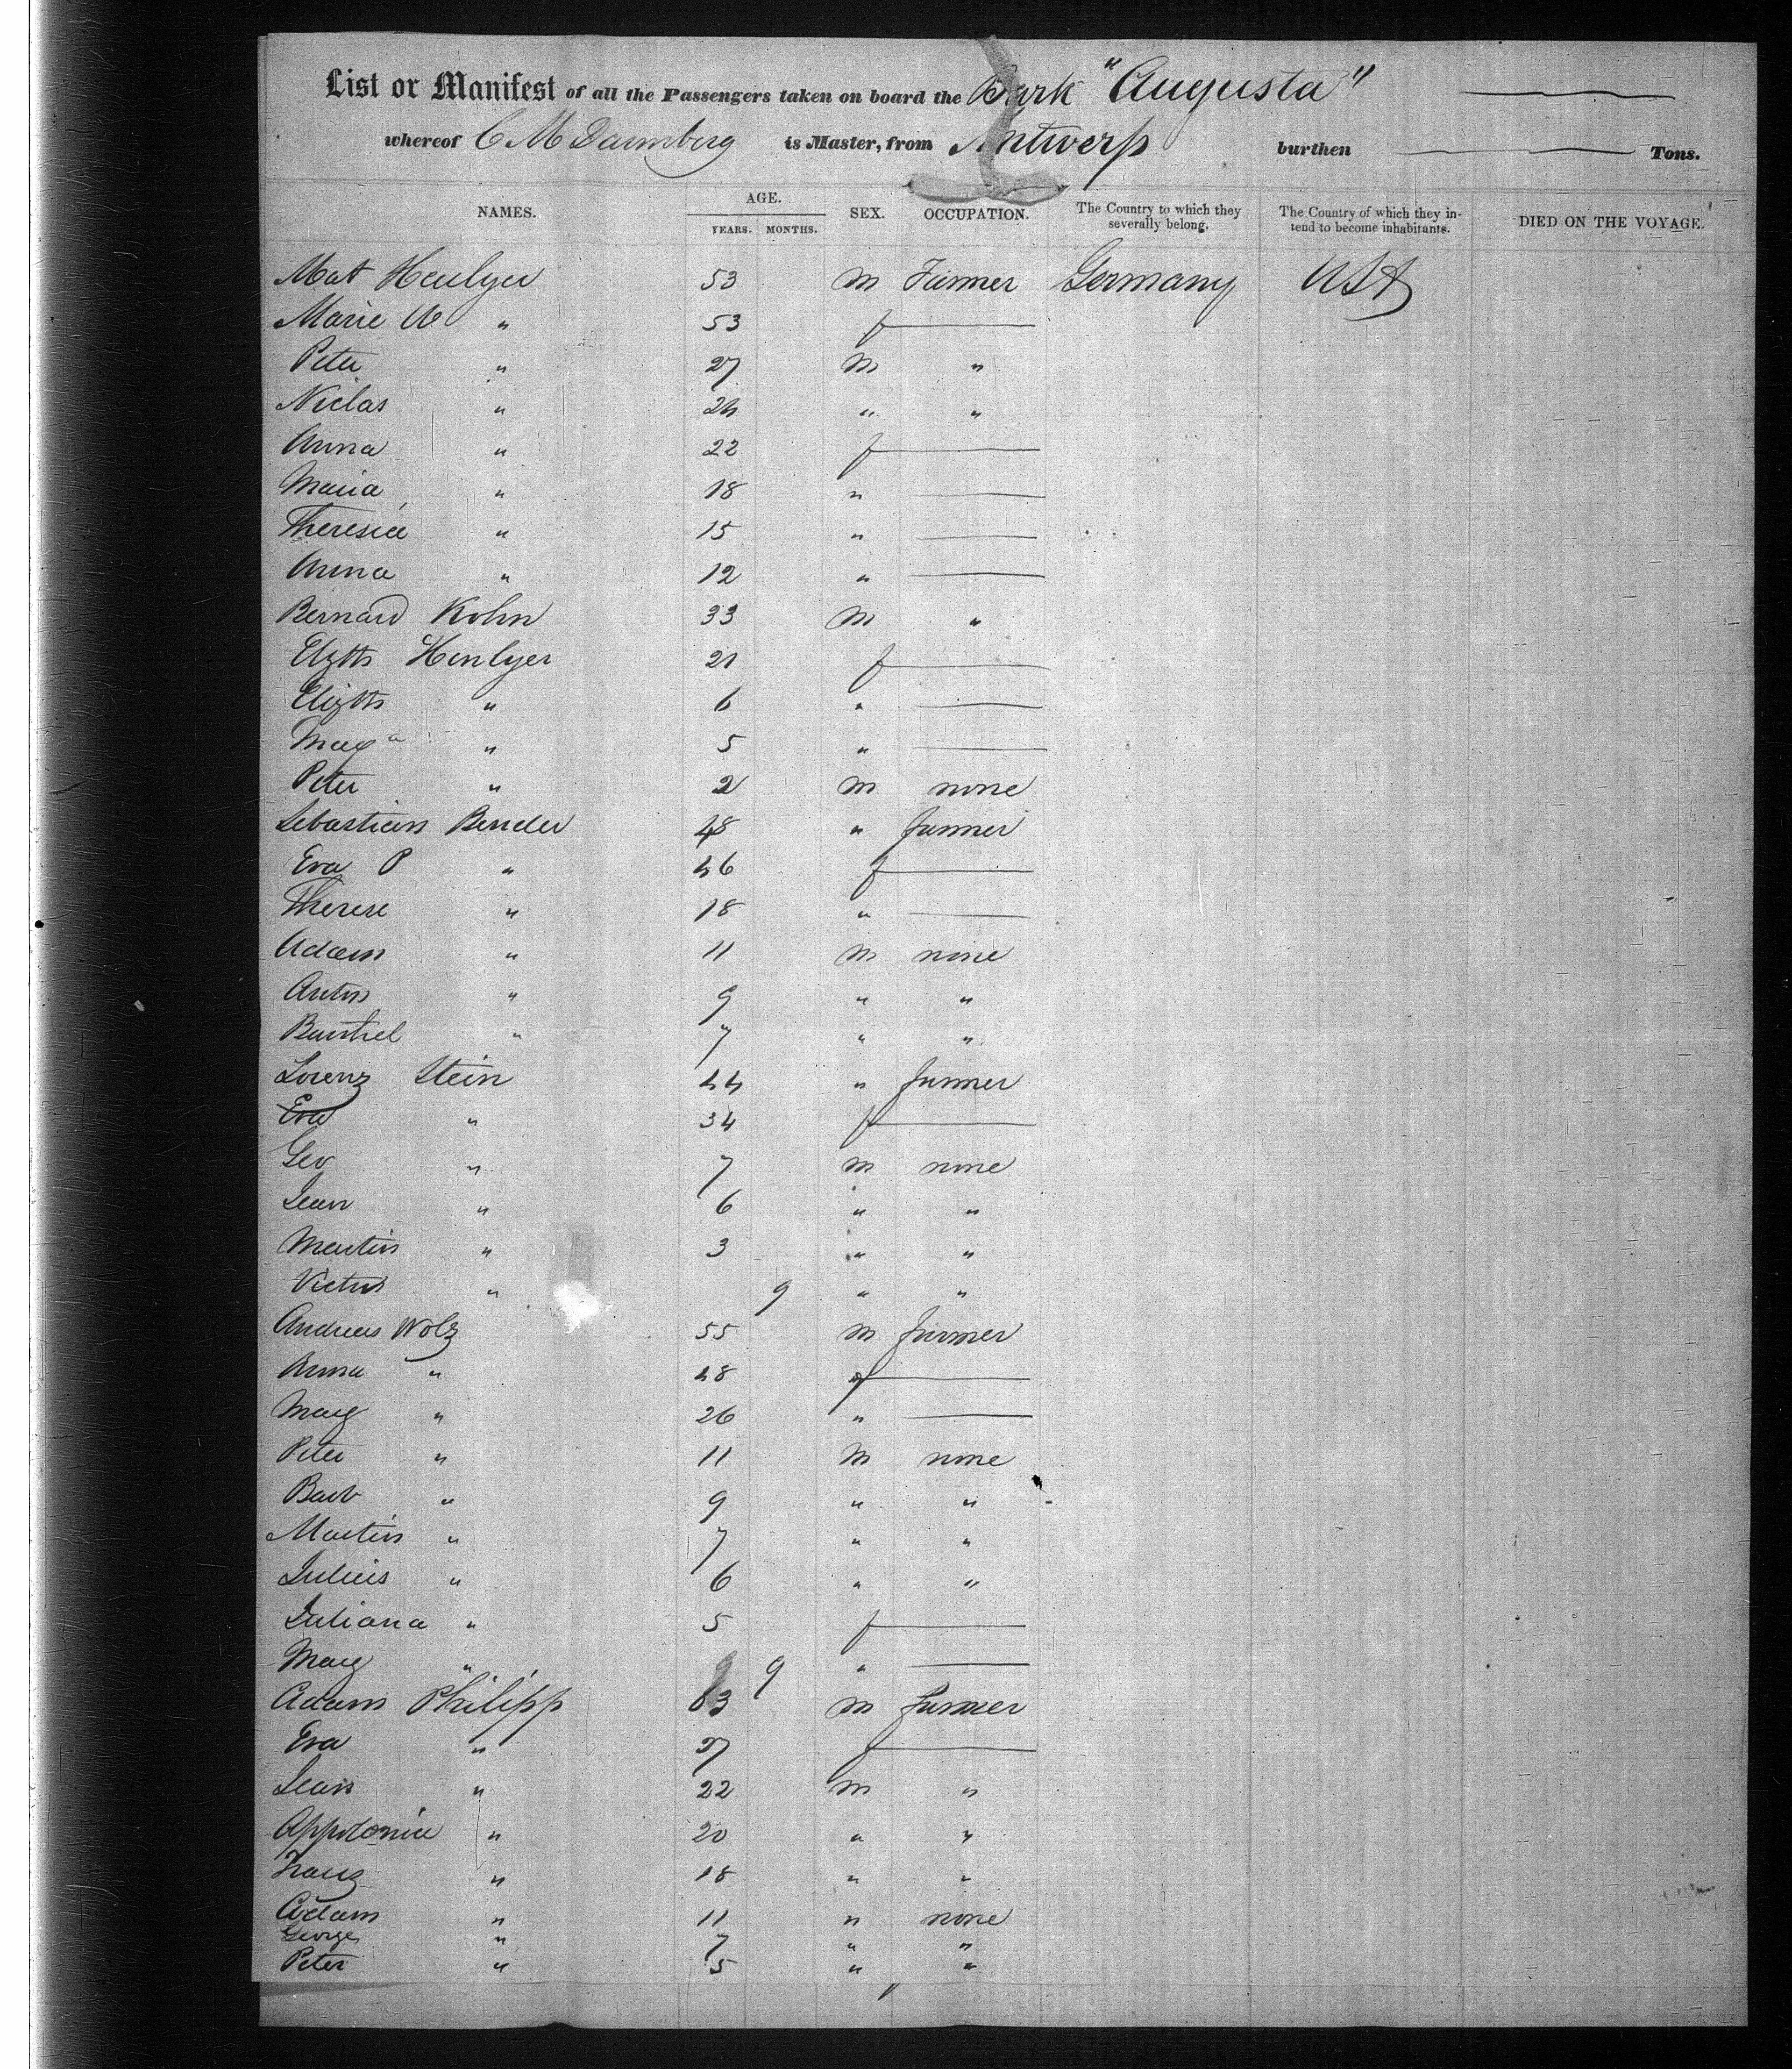 List or Manifest of all the Passengers taken on board the Bark "Augusta"
whereof C M Dannberg is Master, from Antwerp burthen Tons.
NAMES. AGE. YEARS. MONTHS. SEX. OCCUPATION. The Country to which they severally belong. The Country of which they intend to become inhabitants. DIED ON THE VOYAGE.
Mat Henlyer 53 m Farmer Germany USA
Marie " 53 f
Peter " 27 m "
Niclas " 24 " "
Anna " 22 f
Maria " 18 "
Theresia " 15 "
Anna " 12 "
Bernard Kohn 33 m "
Elzth Henlyer 21 f
Elizth " 6 "
Marg a " 5 "
Peter " 2 m none
Sebastian Bender 48 " farmer
Eva P " 46 f
Therese " 18 "
Adam " 11 m none
Anton " 9 " "
Barthel " 7 " "
Lorenz Stein 44 " farmer
Eva " 34 f
Geo " 7 m none
Jean " 6 " "
Martin " 3 " "
Victor " 9 " "
Andreas Wolz 55 m farmer
Anna " 48 f
Marg " 26 "
Peter " 11 m none
Barb " 9 " "
Martin " 7 " "
Julius " 6 " "
Juliana " 5 f
Marg " 9 "
Adam Philipp 63 m farmer
Eva " 37 f
Jean " 22 m "
Appolonia " 20 " "
Franz " 18 " "
Adam " 11 " none
George " 7 " "
Peter " 5 " "